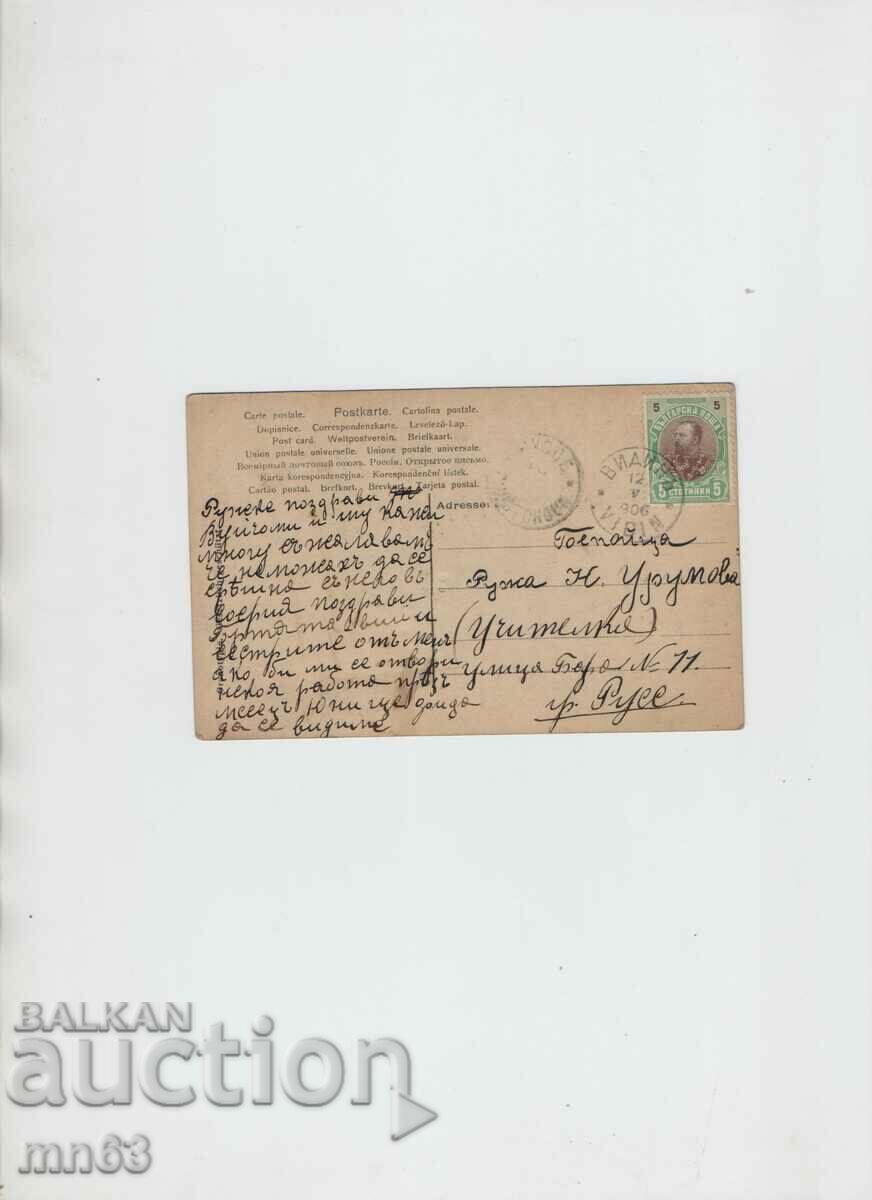 Carte postale. Postkarte. Cartolina postale.
Dopisnice. Correspondenzkarte. Levelező-Lap.
Post card. Weltpostverein. Briefkaart.
Union postale universelle. Unione postale universale.
Всемірный почтовый союзъ. Россія. Открытое письмо.
Karta korespondencyjna. Korespondenční lístek.
Cartão postal. Brefkort. Brevkort. Tarjeta postal.
Adresse:
5 5
БЪЛГАРСКА ПОЩА
5 СТОТИНКИ 5
ВИДИНЪ
12
V
906
VIDIN
Ружке поздрави
и му кажи
многу съжалявамъ
че неможахъ да се
срѣшна съ него въ
София поздрави
братята ви и
сестрите отъ мень
ако, би ми се отвори
некоя работа прѣзъ
месецъ Юни ще доида
да се видиме
Госпоица
Ружа Н. Урумова
(Учителка)
улица Бора № 11.
гр. Русе.
BALKAN
auction
mn63